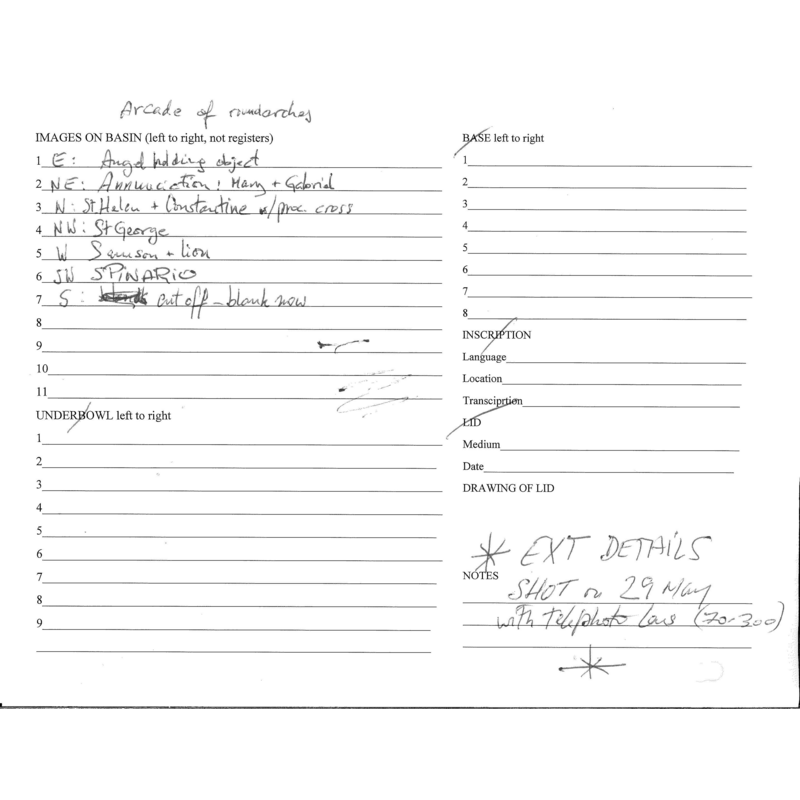 Arcade of roundarches
IMAGES ON BASIN (left to right, not registers)
1 E: Angel holding object
2 NE: Annunciation: Mary + Gabriel
3 N: St Helen + Constantine w/proc. cross
4 NW: St George
5 W Samson + lion
6 SW SPINARIO
7 S: cut off - blank now
8
9
10
11
UNDERBOWL left to right
1
2
3
4
5
6
7
8
9
BASE left to right
1
2
3
4
5
6
7
8
INSCRIPTION
Language
Location
Transciprtion
LID
Medium
Date
DRAWING OF LID
* EXT DETAILS
NOTES
SHOT on 29 May
with telephoto Lens (70-300)
*